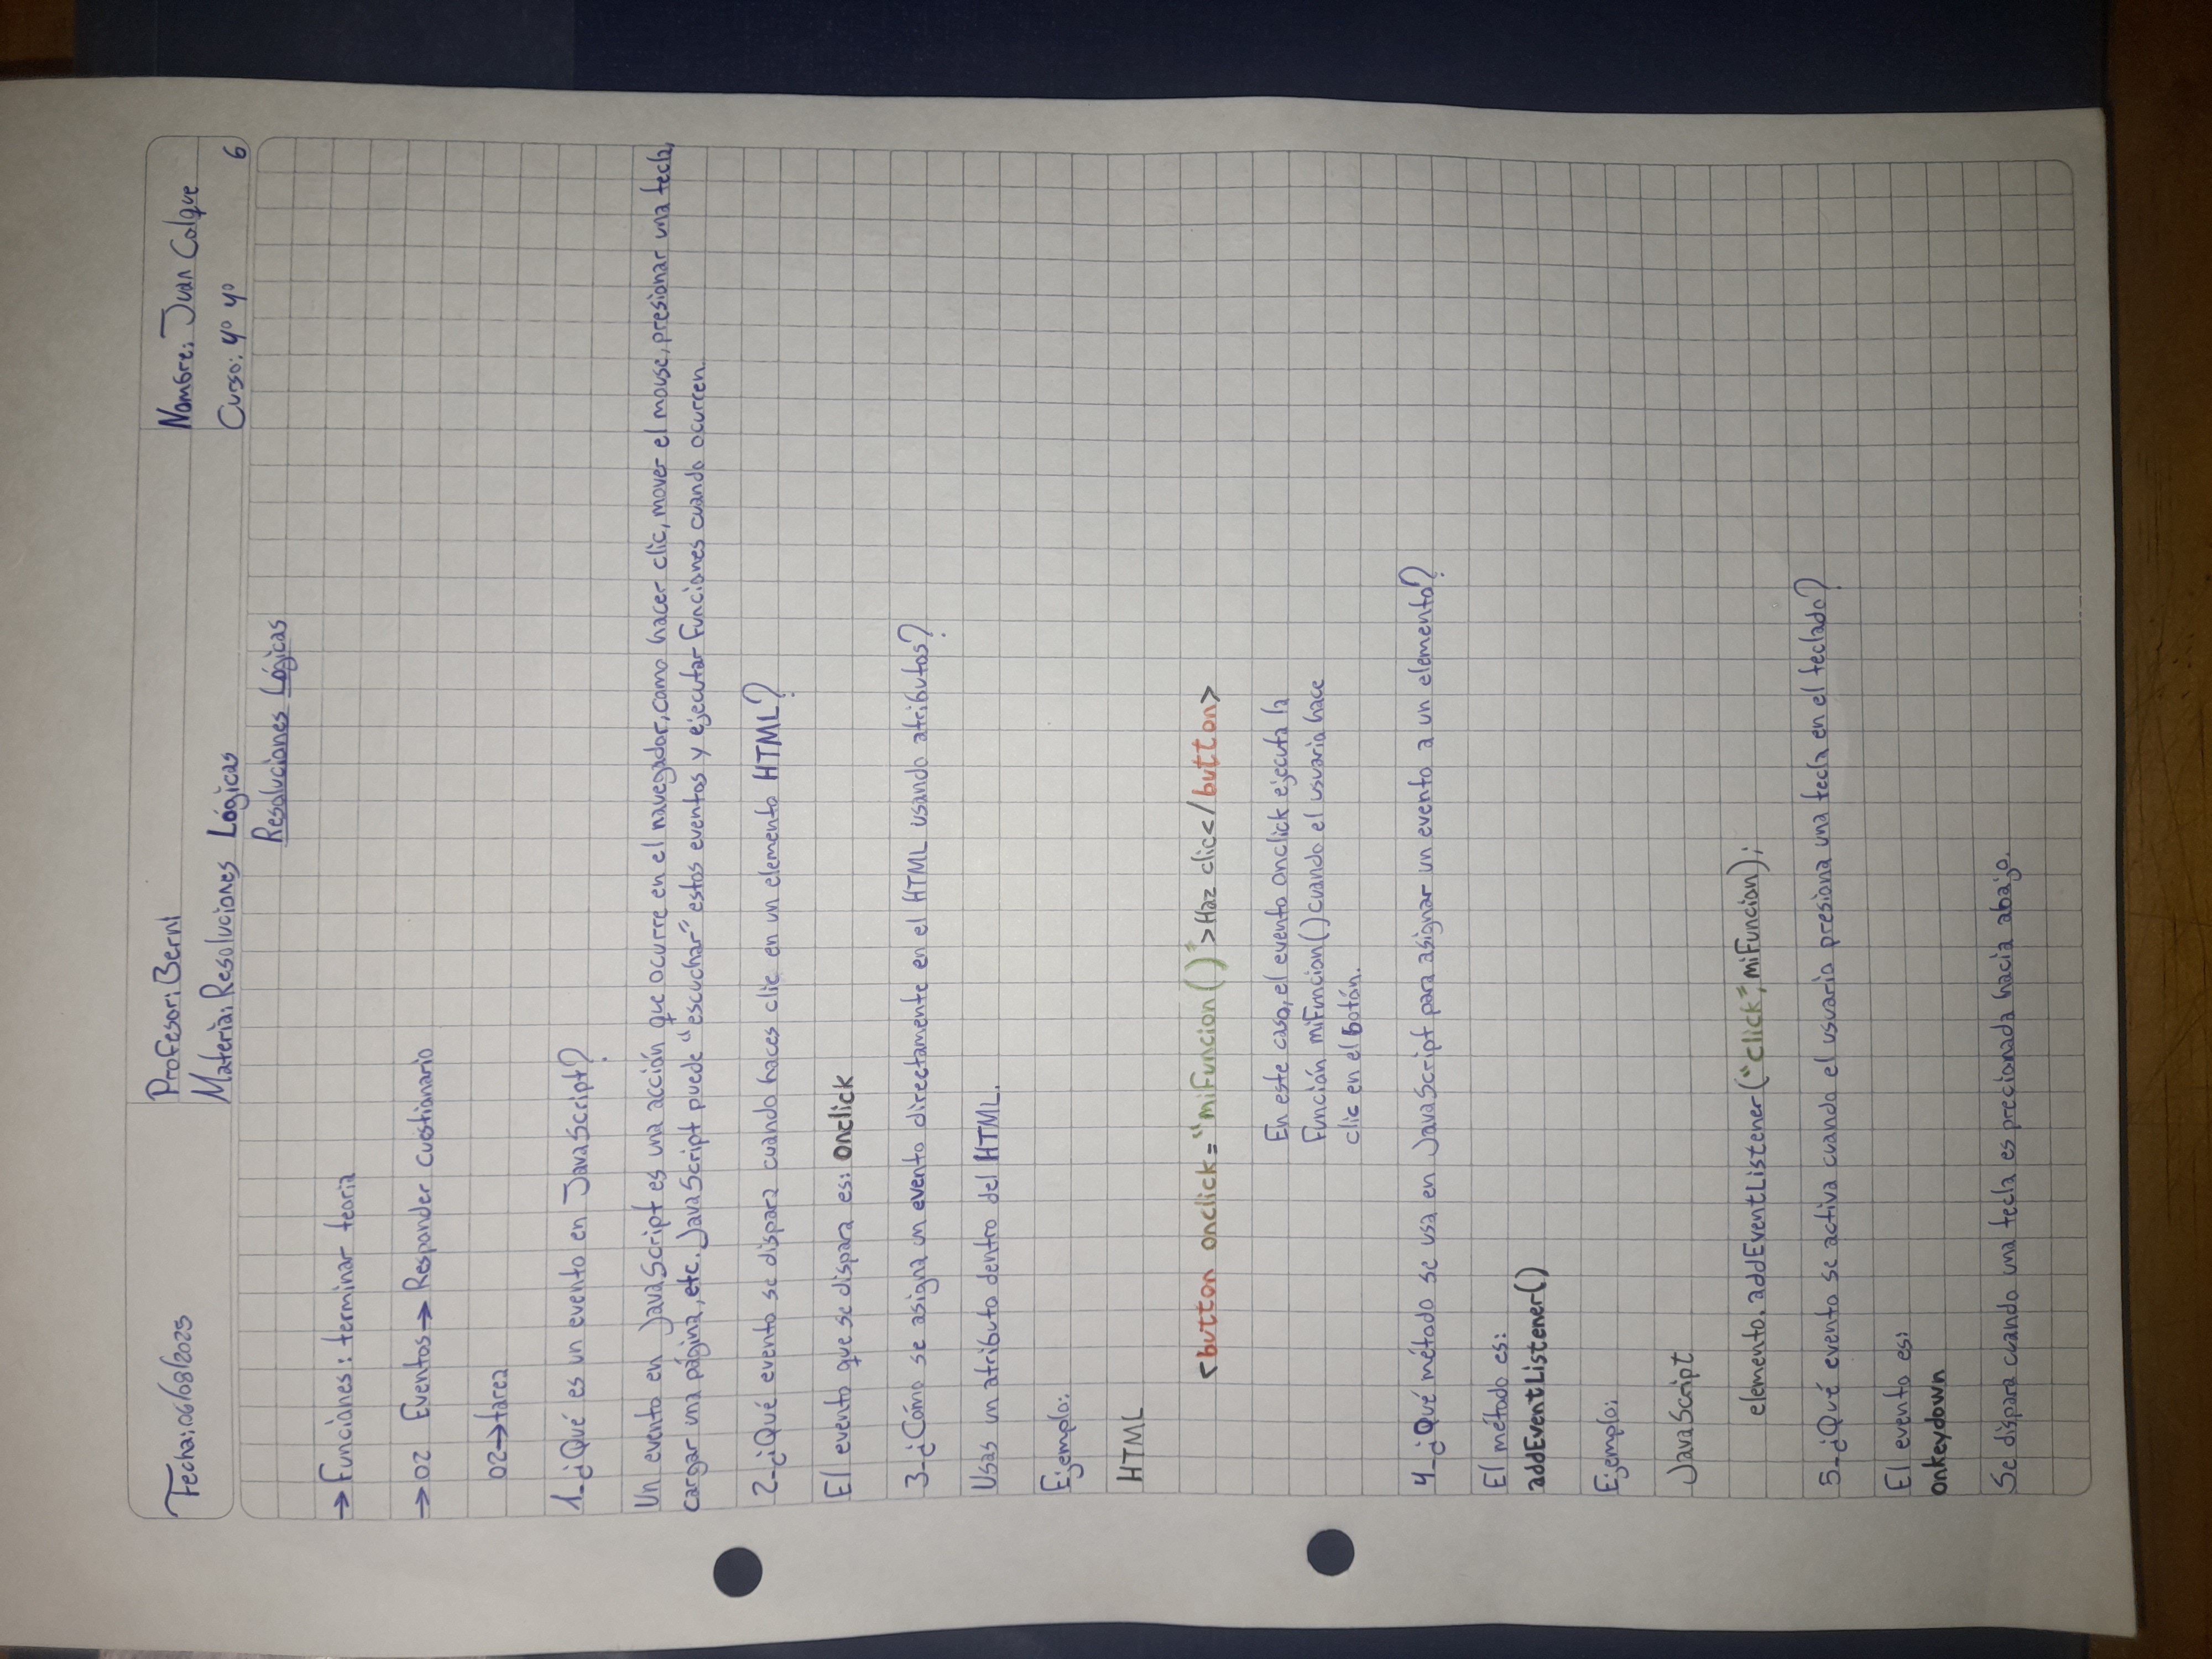 Fecha: 06/08/2025
Profesor: Berni
Materia: Resoluciones Lógicas
Nombre: Juan Colque
Curso: 4° 4°
6
Resoluciones Lógicas
→ Funciones: terminar teoria
→ 02 Eventos → Responder cuestionario
02 → tarea
1_¿Qué es un evento en JavaScript?
Un evento en JavaScript es una acción que ocurre en el navegador, como hacer clic, mover el mouse, presionar una tecla,
cargar una página, etc. JavaScript puede "escuchar" estos eventos y ejecutar funciones cuando ocurren.
2_¿Qué evento se dispara cuando haces clic en un elemento HTML?
El evento que se dispara es: onclick
3_¿Cómo se asigna un evento directamente en el HTML usando atributos?
Usas un atributo dentro del HTML.
Ejemplo:
HTML
<button onclick="miFuncion()">Haz clic</button>
En este caso, el evento onclick ejecuta la
función miFuncion() cuando el usuario hace
clic en el botón.
4_¿Qué método se usa en JavaScript para asignar un evento a un elemento?
El método es:
addEventListener()
Ejemplo:
JavaScript
elemento.addEventListener("click", miFuncion);
5_¿Qué evento se activa cuando el usuario presiona una tecla en el teclado?
El evento es:
onkeydown
Se dispara cuando una tecla es precionada hacia abajo.